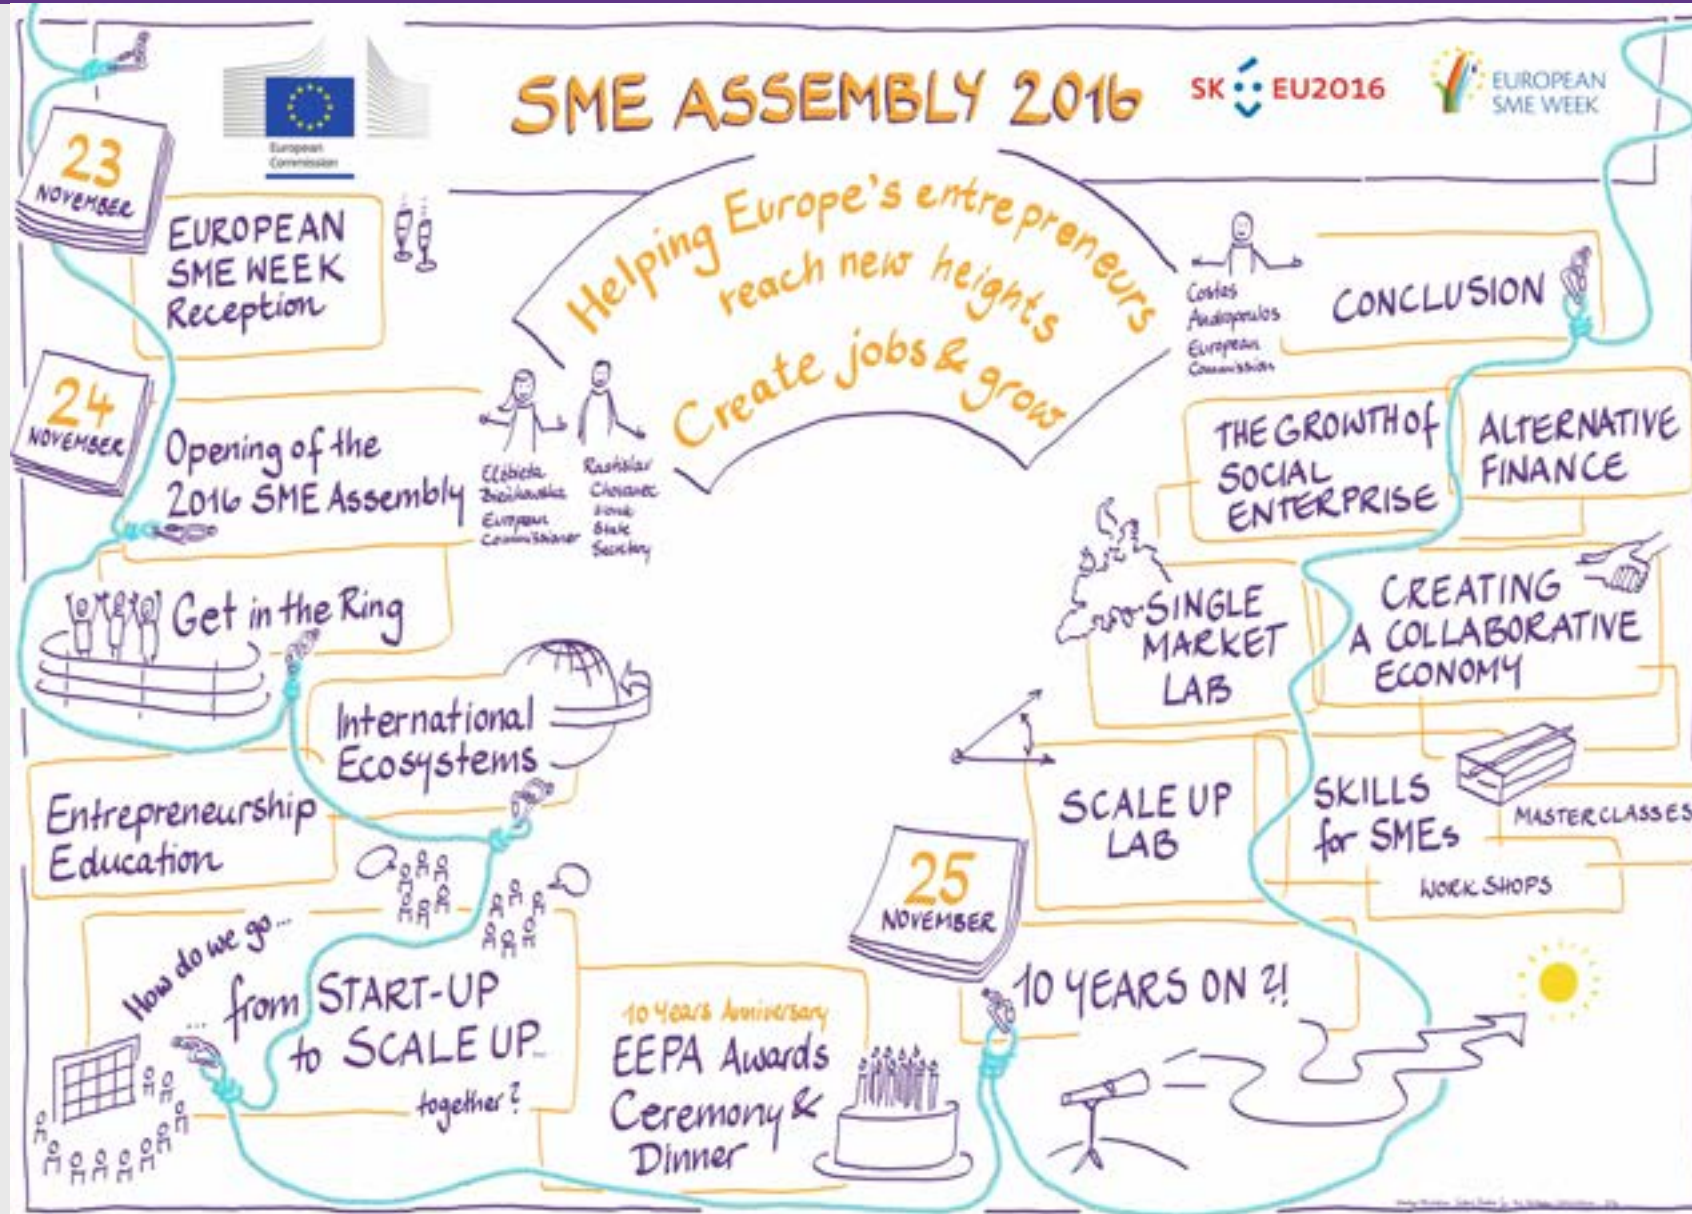 European
Commission
SME ASSEMBLY 2016
SK EU2016
EUROPEAN
SME WEEK
Helping Europe's entrepreneurs
reach new heights
Create jobs & grow
23
NOVEMBER
EUROPEAN
SME WEEK
Reception
24
NOVEMBER
Opening of the
2016 SME Assembly
Elżbieta
Bieńkowska
European
Commissioner
Rastislav
Chovanec
State
Secretary
Get in the Ring
International
Ecosystems
Entrepreneurship
Education
How do we go...
... from START-UP
to SCALE UP...
together?
10 Years Anniversary
EEPA Awards
Ceremony &
Dinner
25
NOVEMBER
10 YEARS ON ?!
SCALE UP
LAB
SKILLS
for SMEs
MASTERCLASSES
WORKSHOPS
SINGLE
MARKET
LAB
CREATING
A COLLABORATIVE
ECONOMY
THE GROWTH of
SOCIAL
ENTERPRISE
ALTERNATIVE
FINANCE
Costas
Andropoulos
European
Commission
CONCLUSION